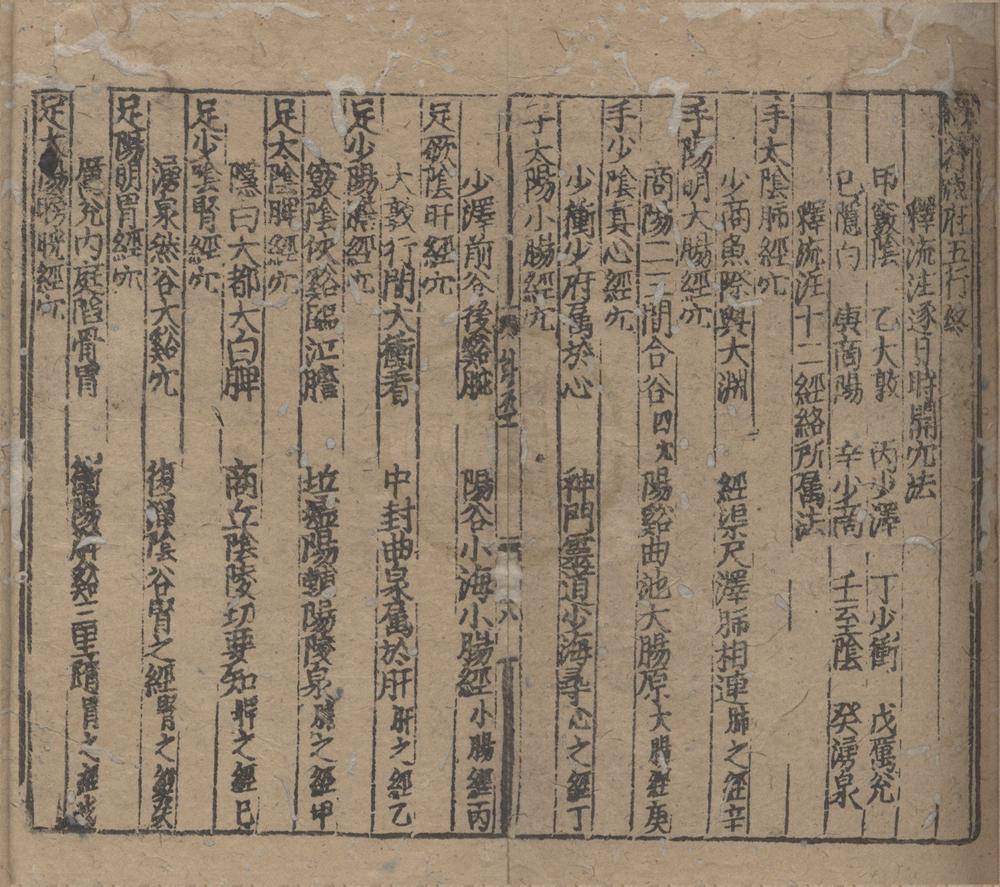 經注臟腑五行終
釋流注逐日時開穴法
甲竅陰 乙大敦 丙少澤 丁少衝 戊厲兌
己隱白 庚商陽 辛少商 壬至陰 癸湧泉
釋流注十二經絡所屬法
手太陰肺經穴
少商魚際與大淵 經渠尺澤肺相連 肺之經辛
手陽明大腸經穴
商陽二三間合谷 四穴 陽谿曲池大腸原 大腸經庚
手少陰真心經穴
少衝少府属於心 神門靈道少海尋 心之經丁
手太陽小腸經穴
少澤前谷後谿腕 陽谷小海小腸經 小腸經丙
足厥陰肝經穴
大敦行間大衝看 中封曲泉属於肝 肝之經乙
足少陽膽經穴
竅陰俠谿臨江膽 坵墟陽輔陽陵泉 膽之經甲
足太陰脾經穴
隱白大都大白脾 商丘陰陵切要知 脾之經己
足少陰腎經穴
湧泉然谷大谿穴 復溜陰谷腎之經 腎之經癸
足陽明胃經穴
厲兌內庭陷骨胃 衝陽解谿三里隨 胃之經戊
足太陽膀胱經穴